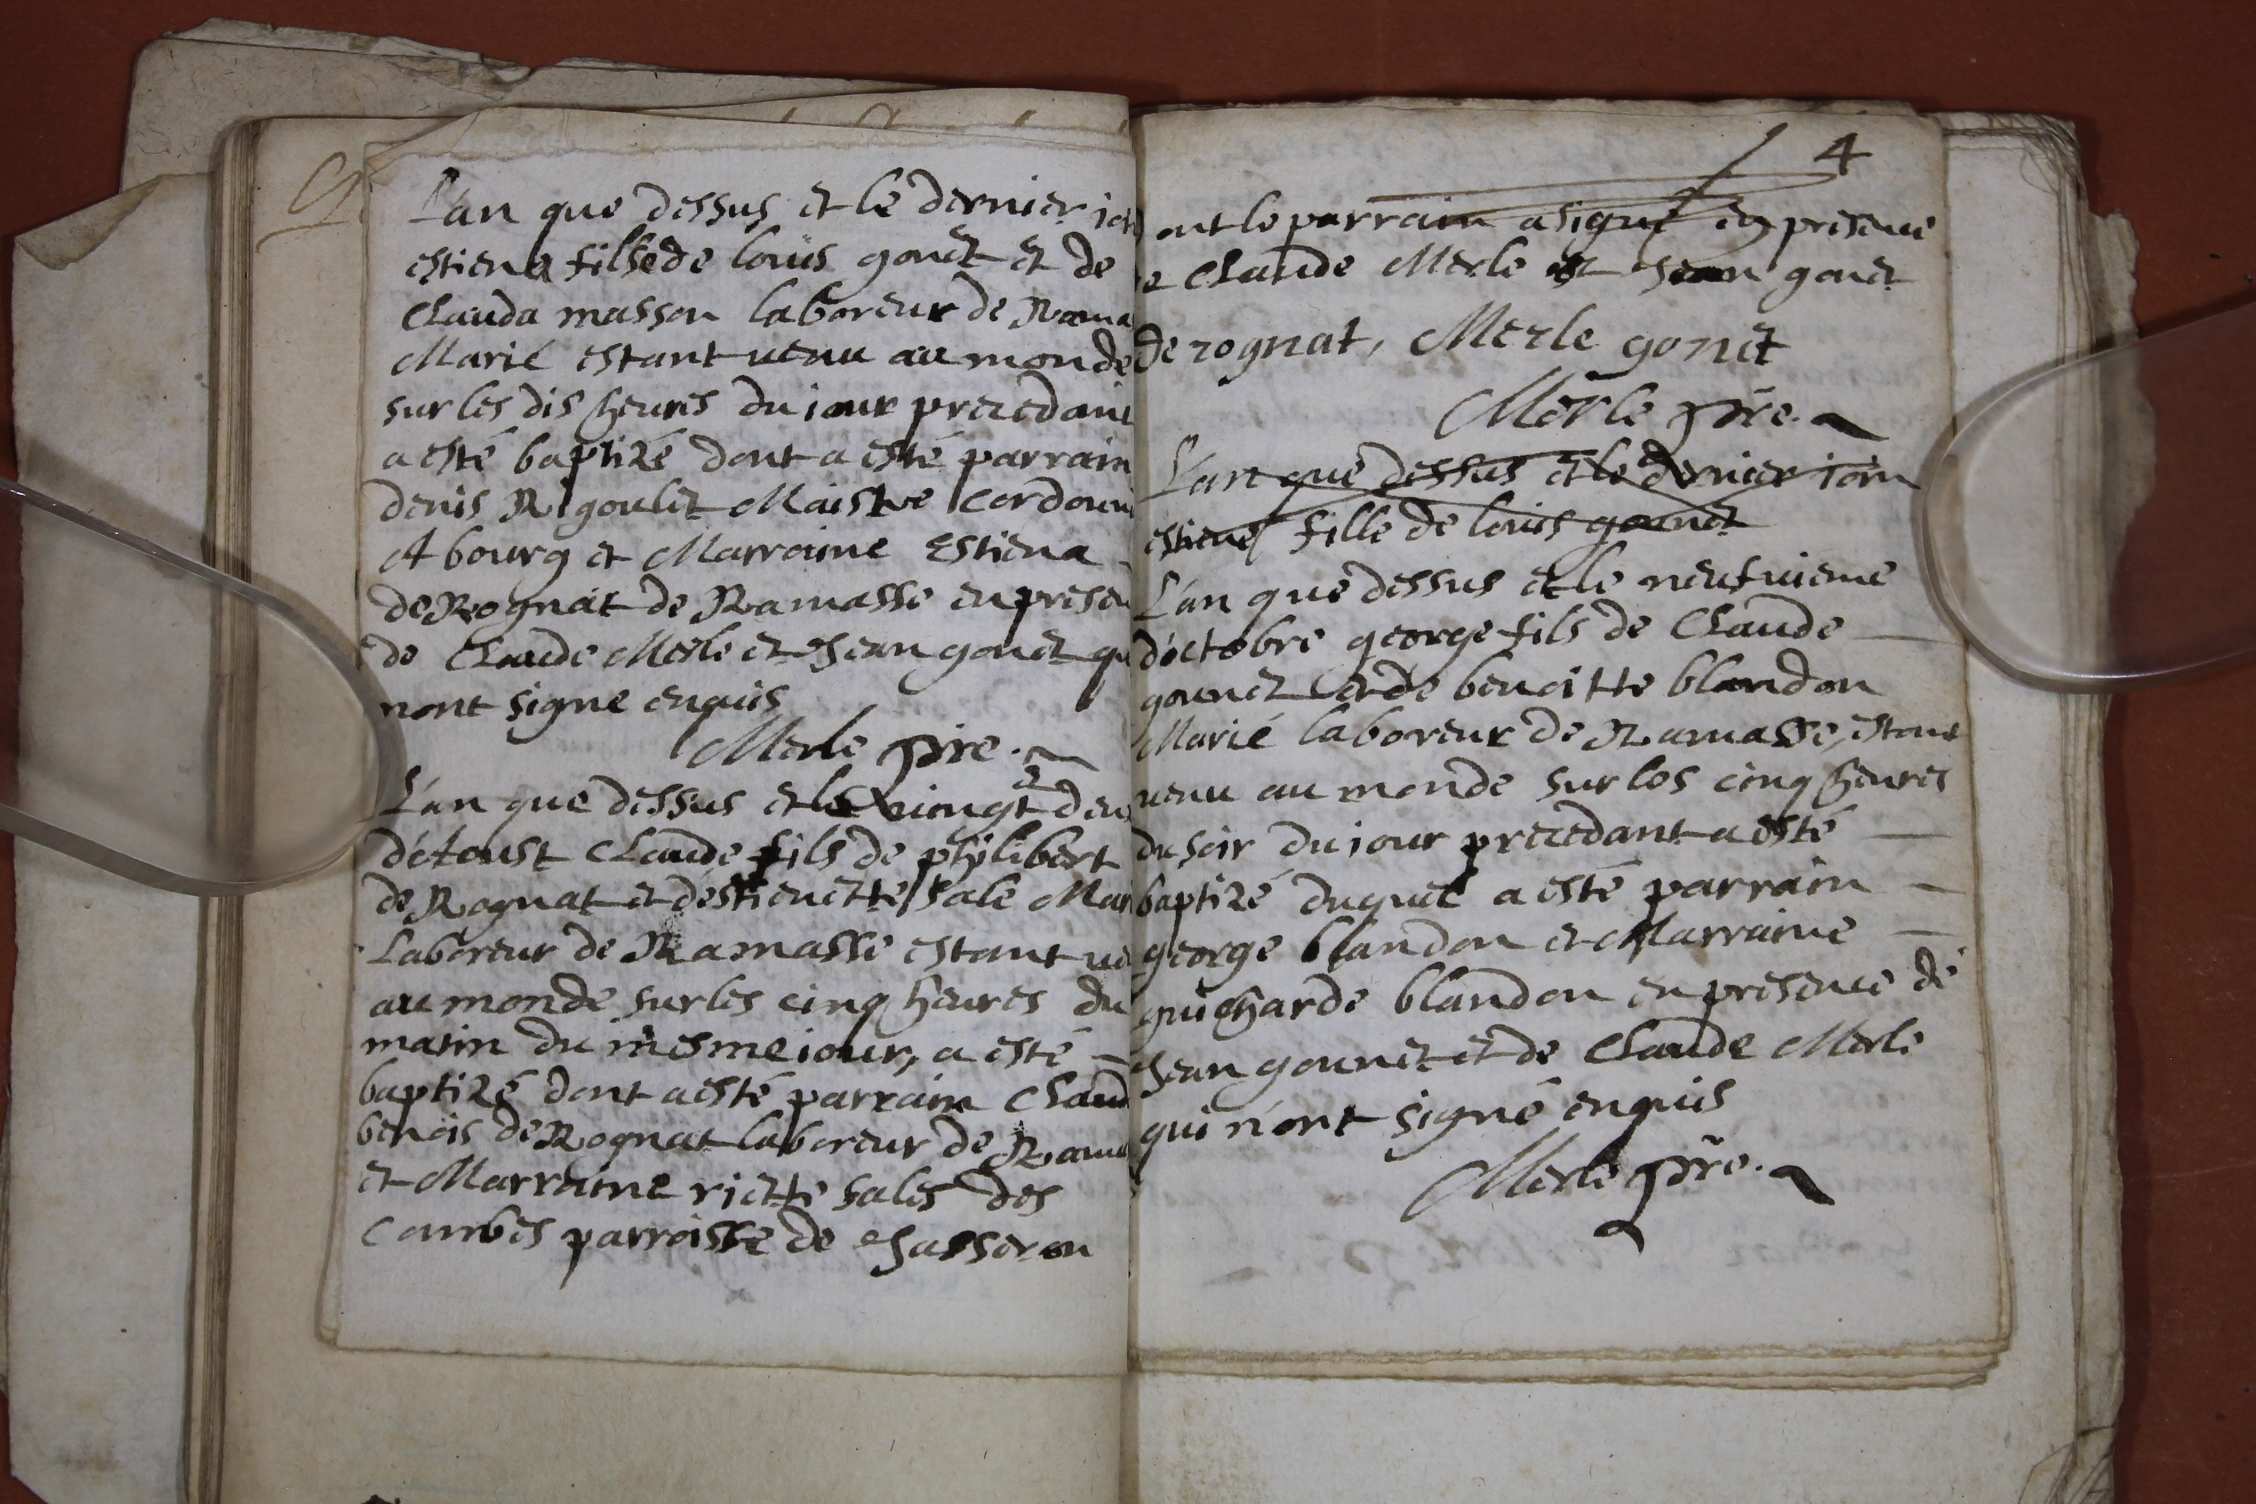 L'an que dessus et le dernier jo
estiena fille de louis gonet et de
Clauda masson laboreur de Rama
Marié estant venu au monde
sur les dis heures du iour precedant
a esté baptizé dont a esté parrain
denis Rigoulet Maistre Cordonn
A bourg et Marraine Estiena
de Rognat de Ramasse en presen
de Claude Merle et Jean gonet qu
nont signe enquis
Merle pbre.
L'an que dessus et le vingt et deu
d'etoust Claude fils de phylibert
de Rognat et d'estienette sale Mar
Laboreur de Ramasse estant ve
au monde sur les cinq heures du
matin du mesme iour, a esté
baptizé dont a esté parrain Claud
benois de Rognat laboreur de Rama
et Marraine riette sales des
Combes parroisse de Jasseron
4
ont le parrain a signé en presence
e Claude Merle et Jean gonet
de rognat, Merle gonet
Merle pbre.
L'an que dessus et le dernier iour
estiene fille de louis gounet
L'an que dessus et le neufvieme
d'octobre george fils de Claude
gounet et de benoitte blandon
Marié laboreur de Ramasse, estant
venu au monde sur les cinq heures
du soir du iour precedant a esté
baptizé duquel a esté parrain
george blandon et Marraine
guicharde blandon en presence de
Jean gounet et de Claude Merle
qui n'ont signé enquis
Merle pbre.